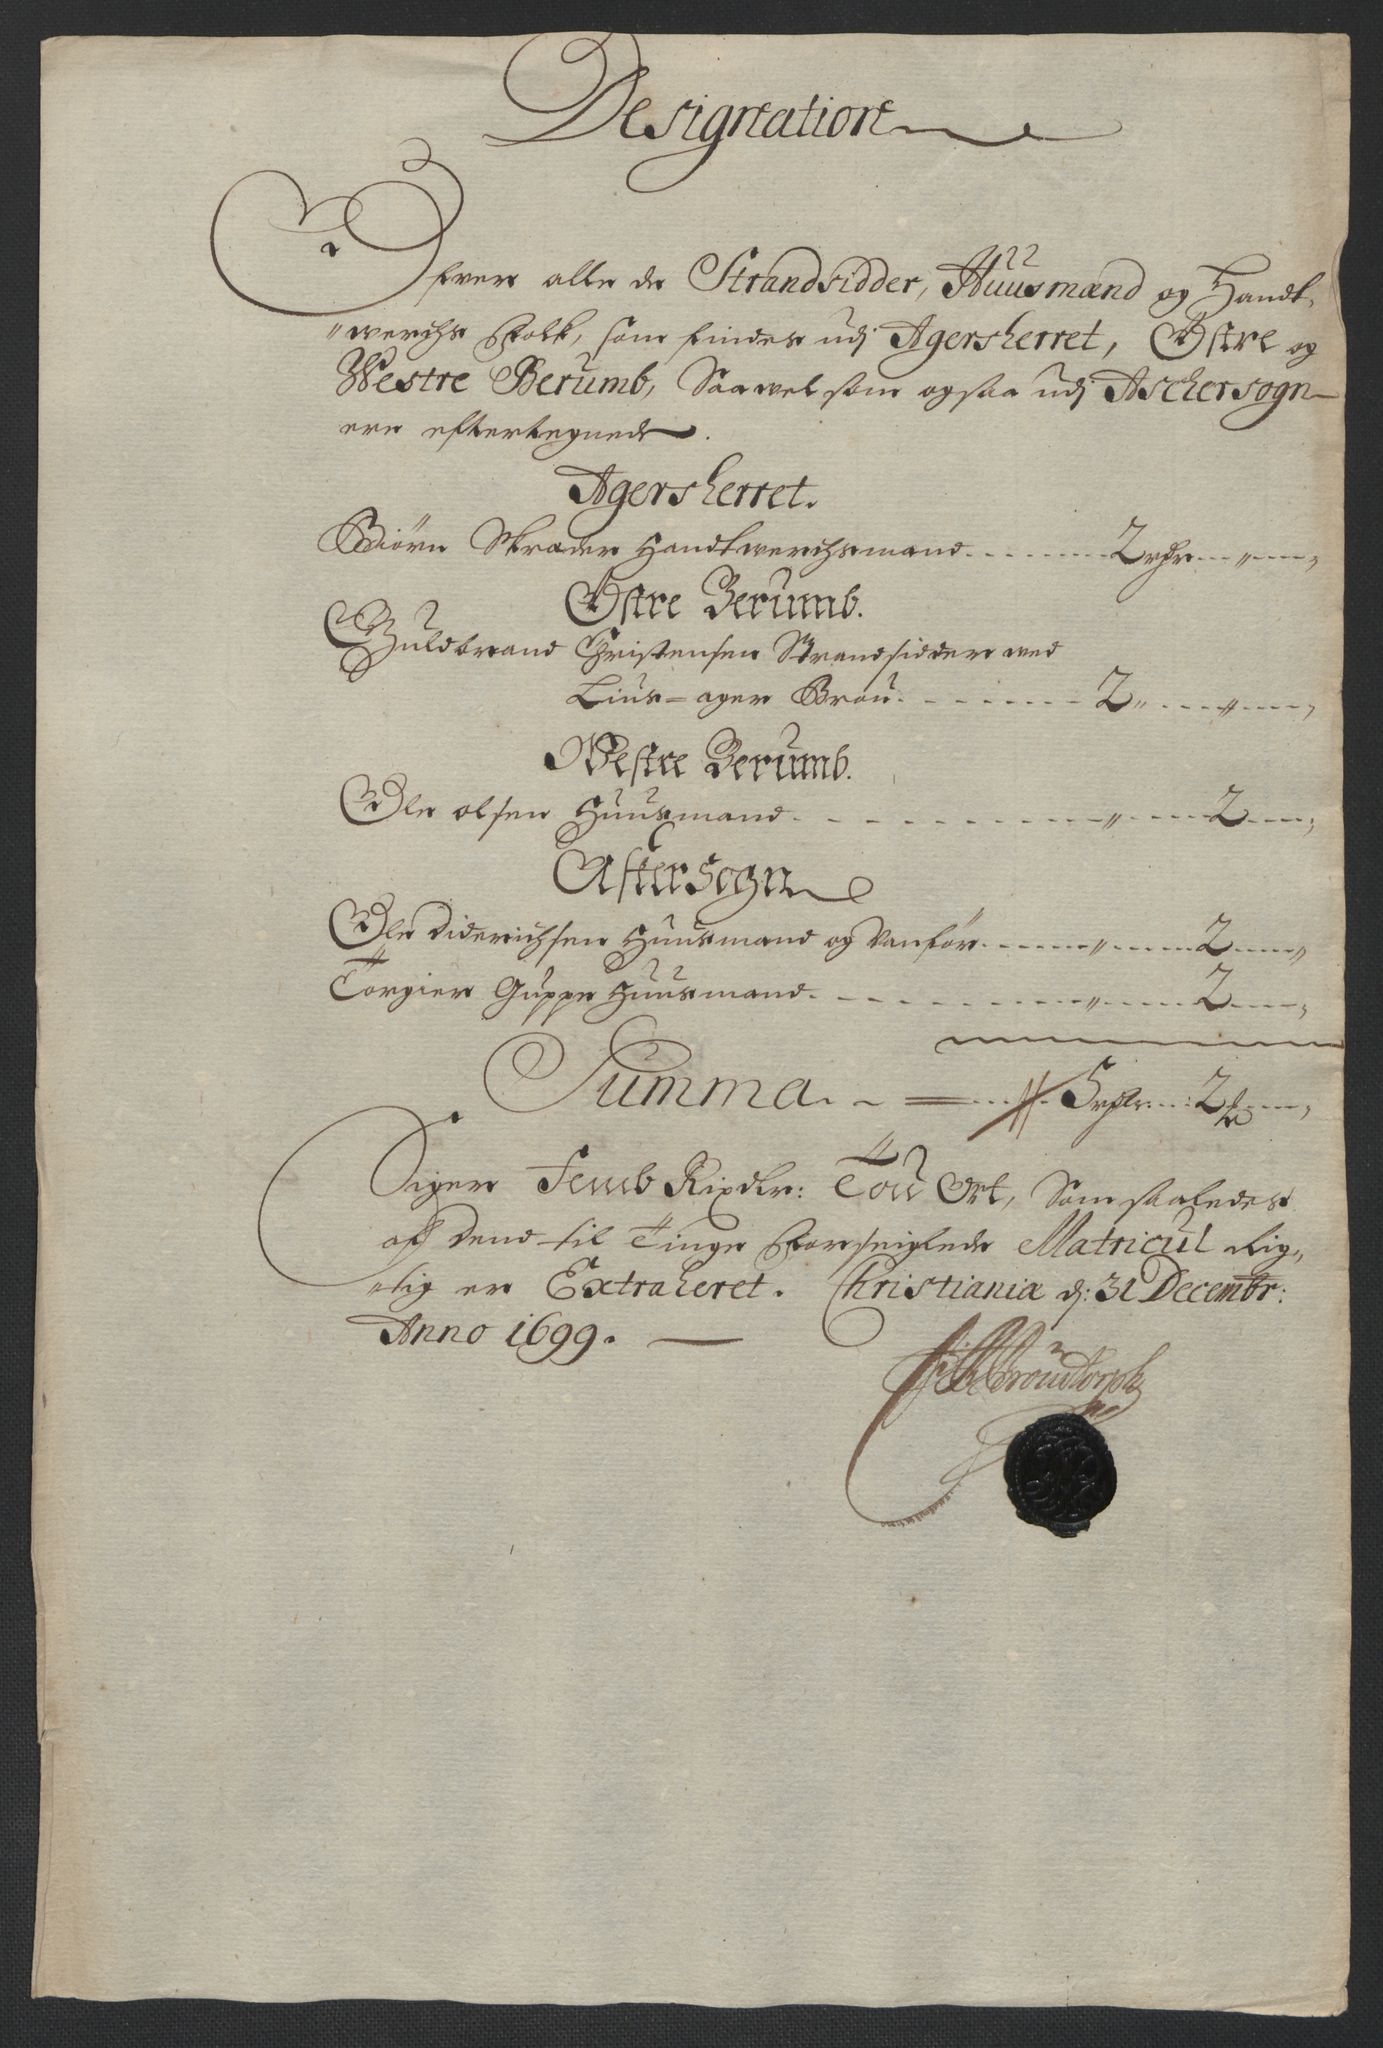 Designation
Ofver alle de Strandsidder, Huusmænd og Handt„
„werchs Folk, som findes udj Agersherret, Østre og
Westre Berumb, Saavel som ogsaa udj Aschersogn
ere eftertegnede.
Agersherret.
Biørn Skreder Handtwerchsmand 2 rdr „ „
Østre Berumb.
Guldbrand Christensen Strandsidder ved
Lius-ager Brou 2 „ „ „
Westre Berumb.
Ole olsen Huusmand „ 2 „
Askersogn
Ole Diderichsen Huusmand og Vanfør „ 2 „
Torgier Guppe Huusmand „ 2 „
Summa 5 rdlr 2 „
Siger Femb Rixdlr: Tou Ort, Som saaledes
af Dend til Tinge Forseiglede Matricul Rig„
„tig er Extraheret. Christiania d: 31 Decembr:
Anno 1699.